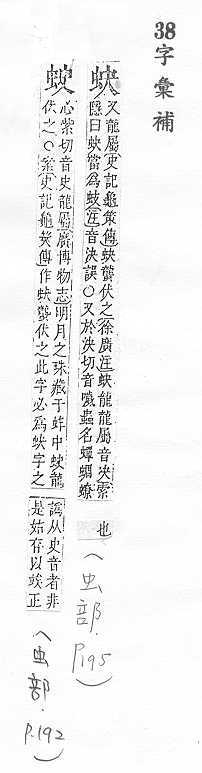 38字彙補
蚗又龍屬史記龜策傳蚗龔伏之徐廣注蚗龍龍屬音決索
隱曰蚗當為蚑注音決誤○又於決切音蟲名蟬蜩蟟 也
(虫部.
P.195)
心紫切音史龍屬廣博物志明月之珠藏于蚌中龍
伏之○案史記龜策傳作蚗龔伏之此字必為蚗字之
譌从史音者非
是姑存以俟正
(虫部.
P.192)